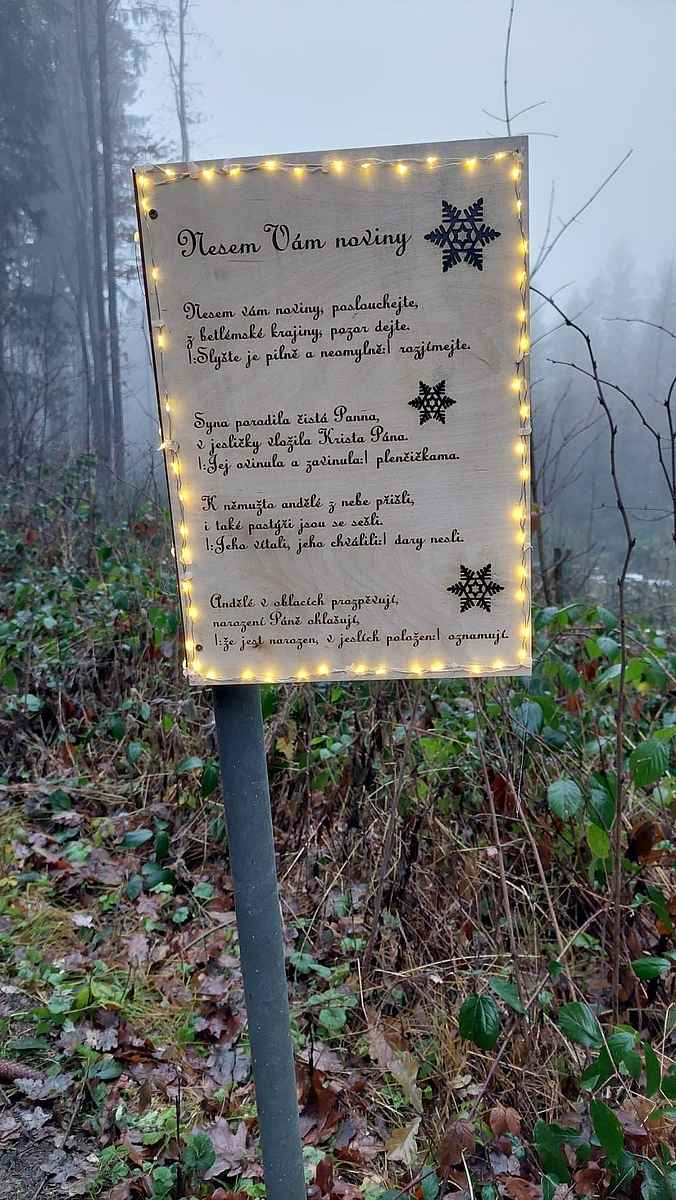 Nesem Vám noviny
Nesem vám noviny, poslouchejte,
z betlémské krajiny, pozor dejte.
|:Slyšte je pilně a neomylně:| rozjímejte.
Syna porodila čistá Panna,
v jesličky vložila Krista Pána.
|:Jej ovinula a zavinula:| plenčičkama.
K němužto andělé z nebe přišli,
i také pastýři jsou se sešli.
|:Jeho vítali, jeho chválili:| dary nesli.
Andělé v oblacích prozpěvují,
narození Páně ohlašují,
|:že jest narozen, v jeslích položen:| oznamují.